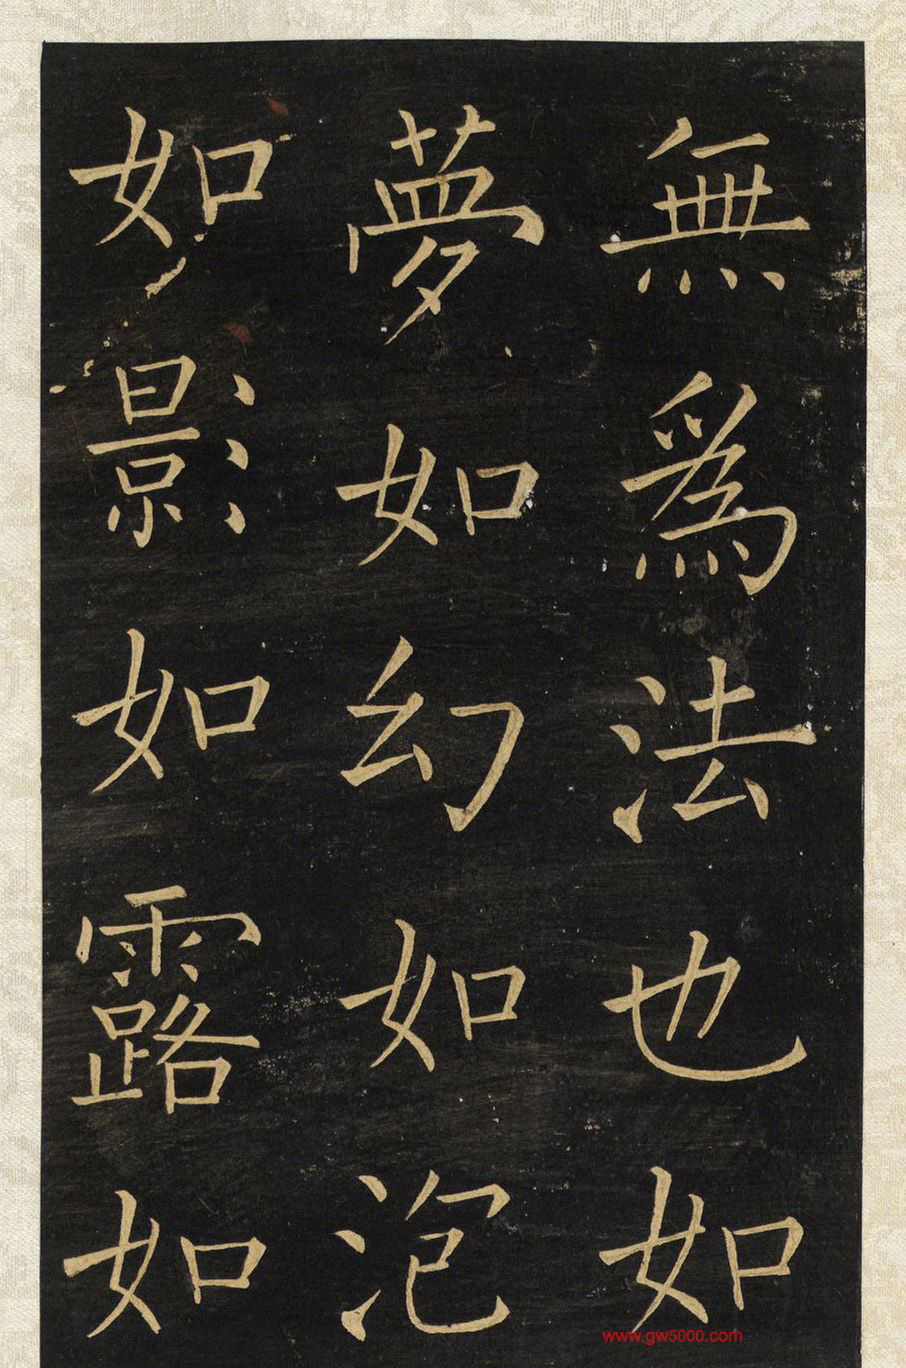 無為法也如
夢如幻如泡
如影如露如
www.gw5000.com